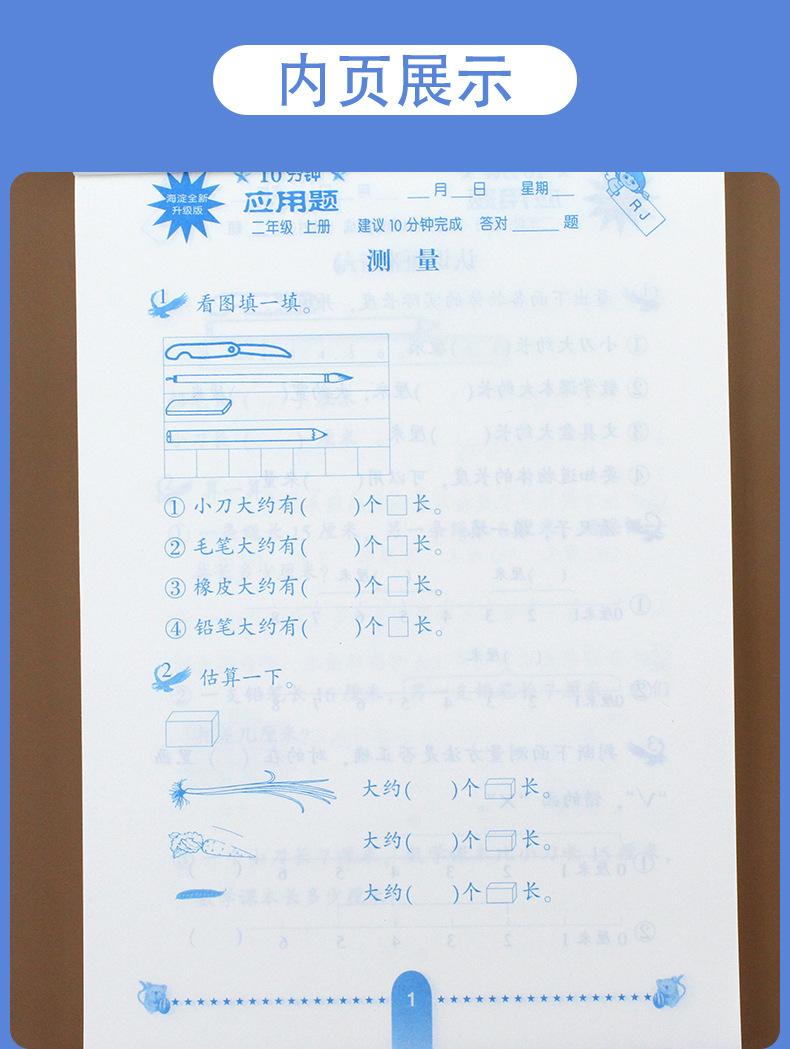 内页展示
海淀全新
升级版
10分钟
应用题
二年级 上册
月 日 星期
建议10分钟完成 答对 题
RJ
测 量
1 看图填一填。
① 小刀大约有( )个□长。
② 毛笔大约有( )个□长。
③ 橡皮大约有( )个□长。
④ 铅笔大约有( )个□长。
2 估算一下。
大约( )个 长。
大约( )个 长。
大约( )个 长。
1